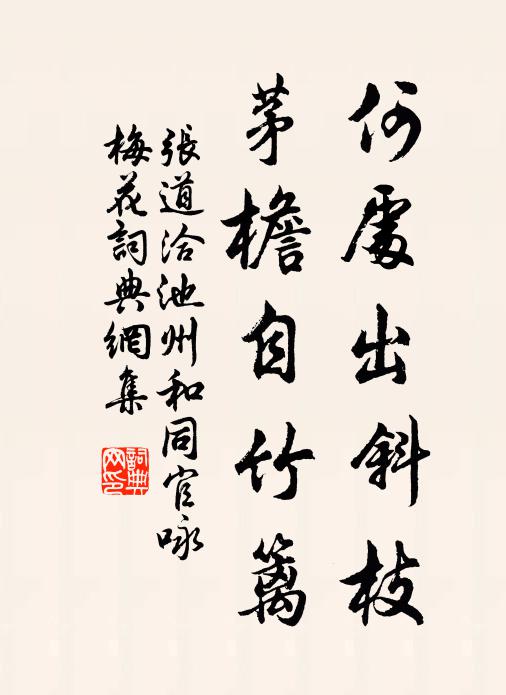 何處出斜枝
茅檐自竹籬
張道洽池州和同官咏
梅花詞典網集
詞典
网印